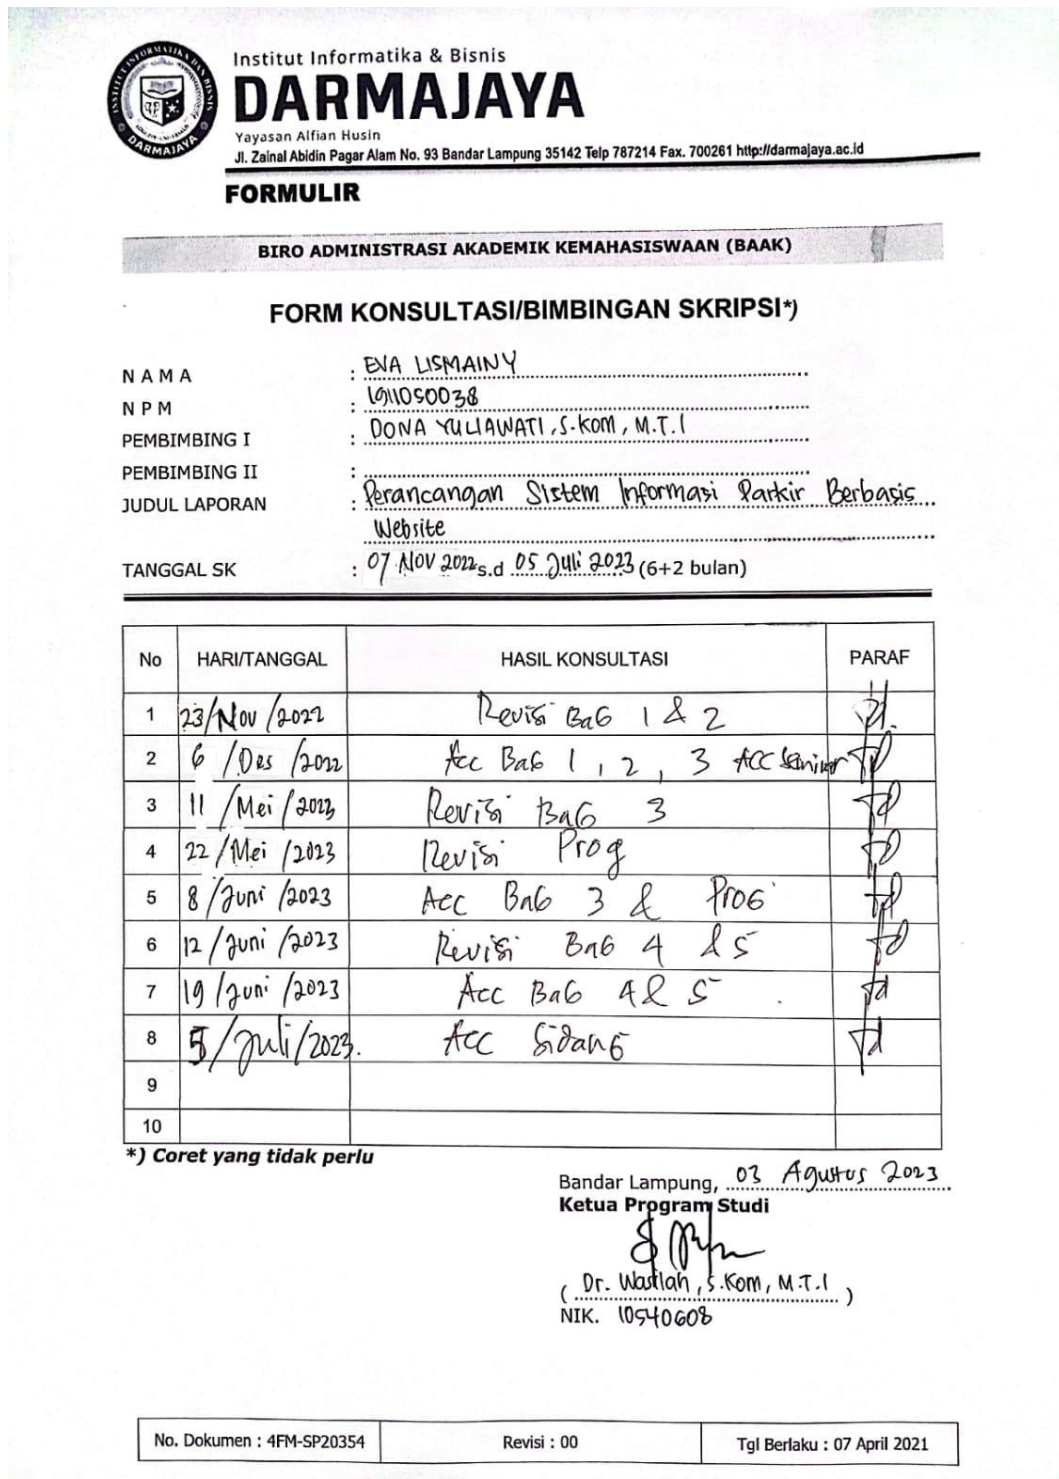 Institut Informatika & Bisnis
DARMAJAYA
Yayasan Alfian Husin
Jl. Zainal Abidin Pagar Alam No. 93 Bandar Lampung 35142 Telp 787214 Fax. 700261 http://darmajaya.ac.id
FORMULIR
BIRO ADMINISTRASI AKADEMIK KEMAHASISWAAN (BAAK)
FORM KONSULTASI/BIMBINGAN SKRIPSI*)
N A M A : EVA LISMAINY
N P M : 1911050038
PEMBIMBING I : DONA YULIAWATI, S.KOM, M.T.I
PEMBIMBING II :
JUDUL LAPORAN : Perancangan Sistem Informasi Parkir Berbasis
Website
TANGGAL SK : 07 NOV 2022 s.d 05 Juli 2023 (6+2 bulan)
No HARI/TANGGAL HASIL KONSULTASI PARAF
1 23/Nov/2022 Revisi Bab 1 & 2
2 6/Des/2022 Acc Bab 1, 2, 3 ACC Seminar
3 11/Mei/2023 Revisi Bab 3
4 22/Mei/2023 Revisi Prog
5 8/Juni/2023 Acc Bab 3 & Prog
6 12/Juni/2023 Revisi Bab 4 & 5
7 19/Juni/2023 Acc Bab 4 & 5
8 5/Juli/2023. Acc Sidang
9
10
*) Coret yang tidak perlu
Bandar Lampung, 03 Agustus 2023
Ketua Program Studi
( Dr. Wasilah, S.Kom, M.T.I )
NIK. 10540608
No. Dokumen : 4FM-SP20354 Revisi : 00 Tgl Berlaku : 07 April 2021